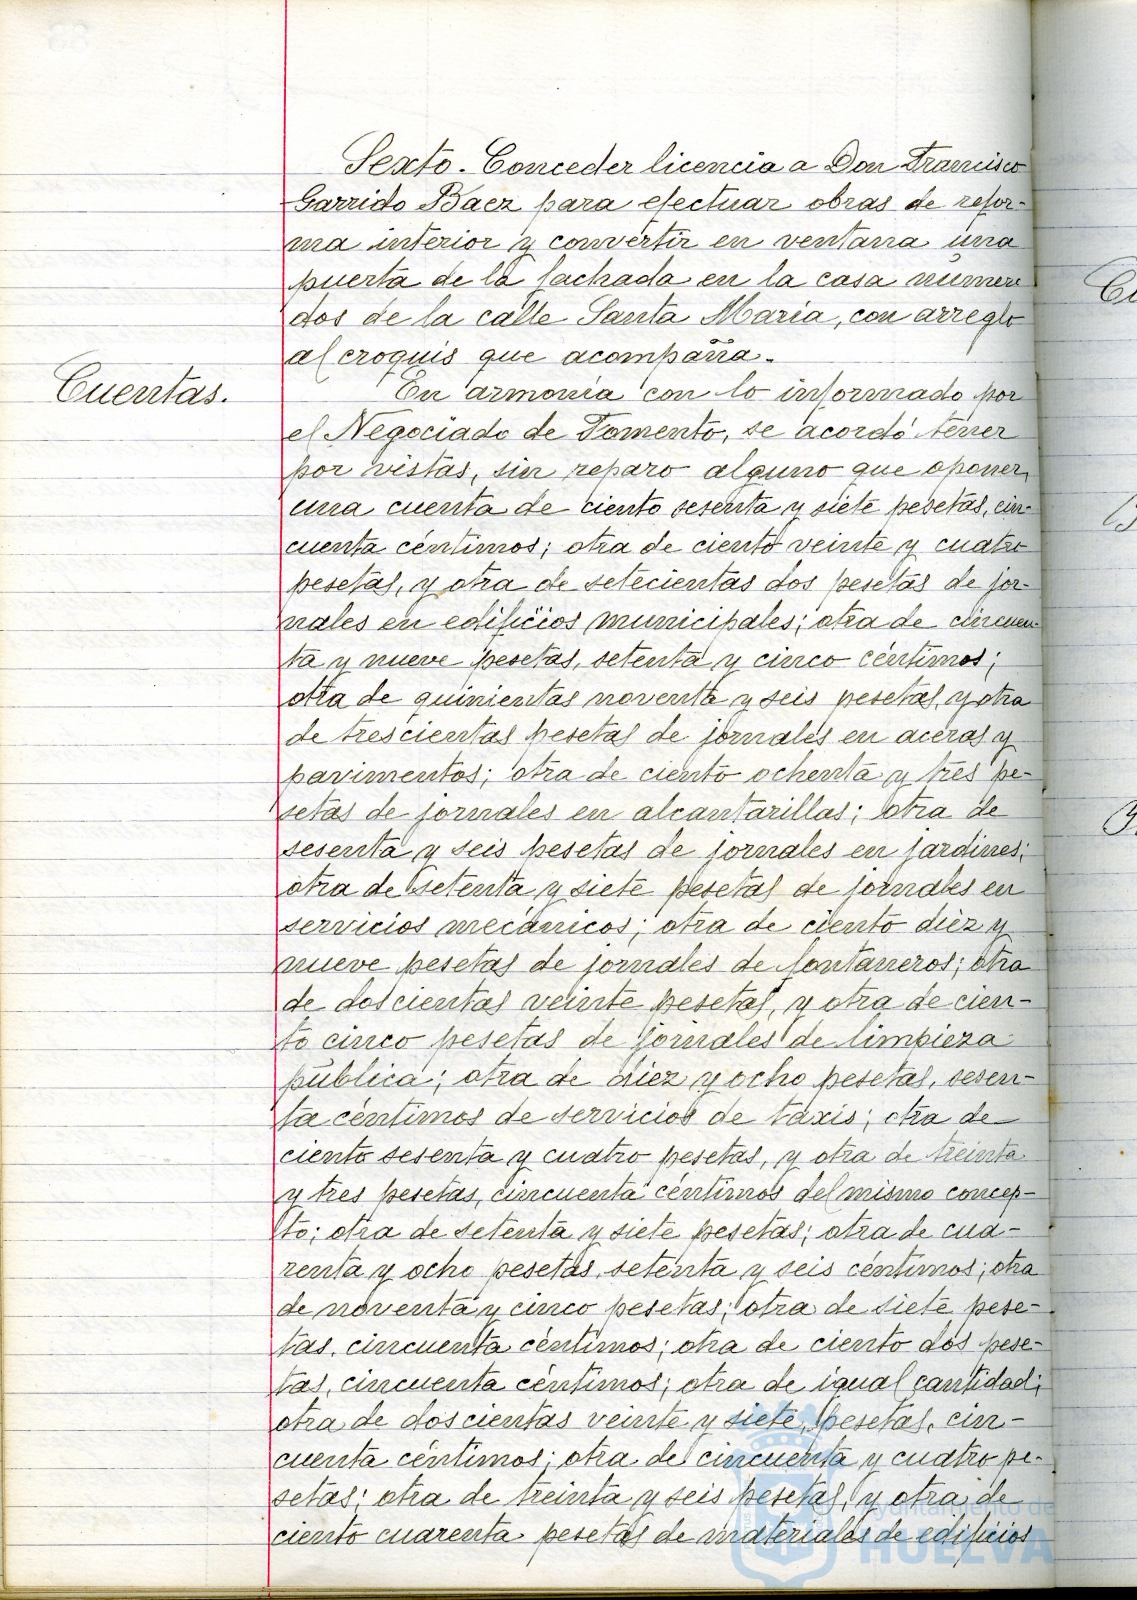 Sexto. Conceder licencia a Don Francisco
Garrido Baez para efectuar obras de refor-
ma interior y convertir en ventana una
puerta de la fachada en la casa número
dos de la calle Santa María, con arreglo
al croquis que acompaña.
Cuentas.
En armonía con lo informado por
el Negociado de Fomento, se acordó tener
por vistas, sin reparo alguno que oponer,
una cuenta de ciento sesenta y siete pesetas, cin-
cuenta céntimos; otra de ciento veinte y cuatro
pesetas, y otra de setecientas dos pesetas de jor-
nales en edificios municipales; otra de cincuen-
ta y nueve pesetas, setenta y cinco céntimos;
otra de quinientas noventa y seis pesetas, y otra
de trescientas pesetas de jornales en aceras y
pavimentos; otra de ciento ochenta y tres pe-
setas de jornales en alcantarillas; otra de
sesenta y seis pesetas de jornales en jardines;
otra de setenta y siete pesetas de jornales en
servicios mecánicos; otra de ciento diez y
nueve pesetas de jornales de fontaneros; otra
de doscientas veinte pesetas, y otra de cien-
to cinco pesetas de jornales de limpieza
pública; otra de diez y ocho pesetas, sesen-
ta céntimos de servicios de taxis; otra de
ciento sesenta y cuatro pesetas, y otra de treinta
y tres pesetas, cincuenta céntimos del mismo concep-
to; otra de setenta y siete pesetas; otra de cua-
renta y ocho pesetas, setenta y seis céntimos; otra
de noventa y cinco pesetas; otra de siete pese-
tas, cincuenta céntimos; otra de ciento dos pese-
tas, cincuenta céntimos; otra de igual cantidad;
otra de doscientas veinte y siete, pesetas, cin-
cuenta céntimos; otra de cincuenta y cuatro pe-
setas; otra de treinta y seis pesetas, y otra de
ciento cuarenta pesetas de materiales de edificios
Ayuntamiento de
HUELVA